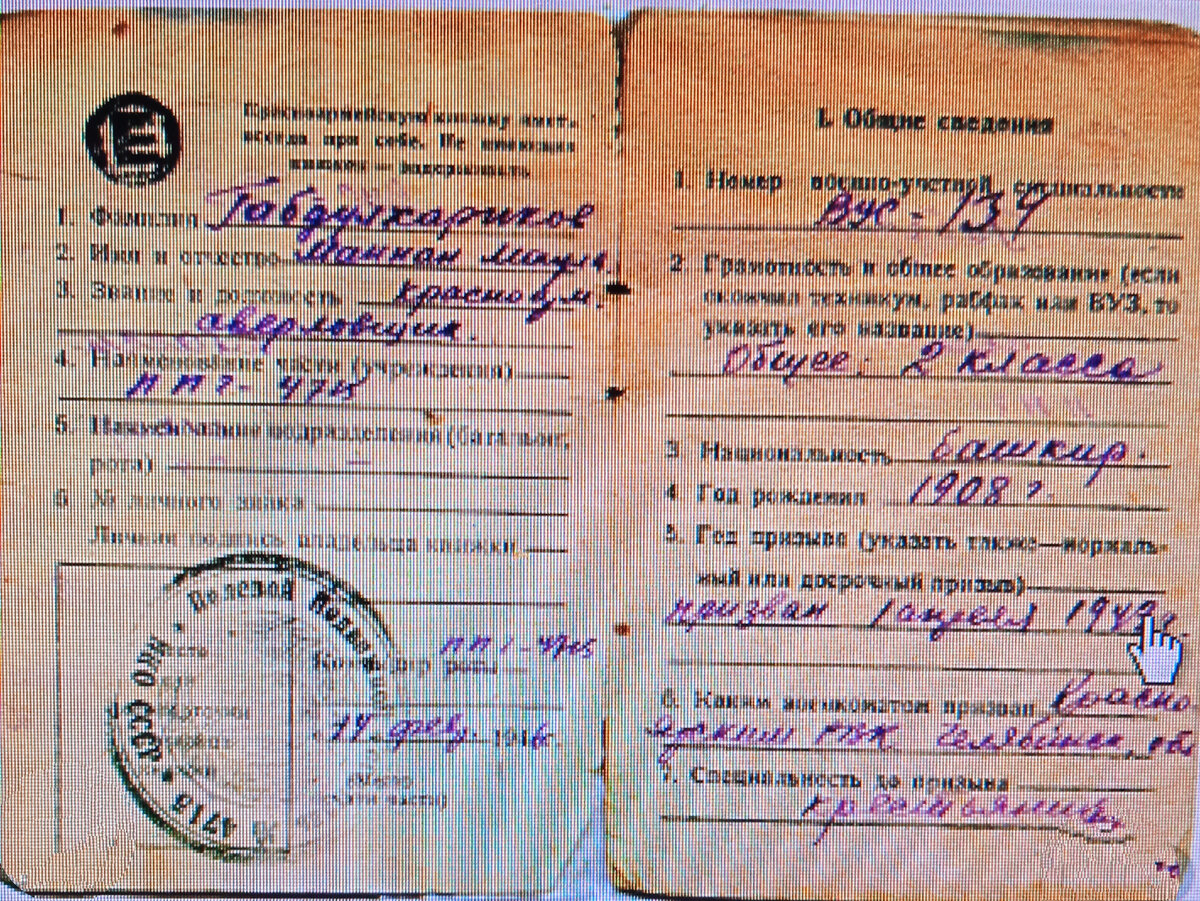 Красноармейскую книжку иметь
всегда при себе. Не имеющих
книжки — задерживать
1. Фамилия Габдулкаримов
2. Имя и отчество Маннан
3. Звание и должность красноарм.
4. Наименование части (учреждения)
ППГ-4718
5. Наименование подразделения (батальон,
рота)
6. № личного знака
Личная подпись владельца книжки
ППГ-4718
Командир роты
14 фев. 1946г.
(Место
печати части)
Полевой
НКО СССР
№ 4718
I. Общие сведения
1. Номер военно-учетной специальности
ВУС-134
2. Грамотность и общее образование (если
окончил техникум, рабфак или ВУЗ, то
указать его название)
Общее: 2 класса
3 Национальность башкир.
4 Год рождения 1908 г.
5. Год призыва (указать также—нормаль-
ный или досрочный призыв)
призван 1 апреля
6. Каким военкоматом призван Красно
РВК Челябинск. обл
7. Специальность до призыва
крестьянин